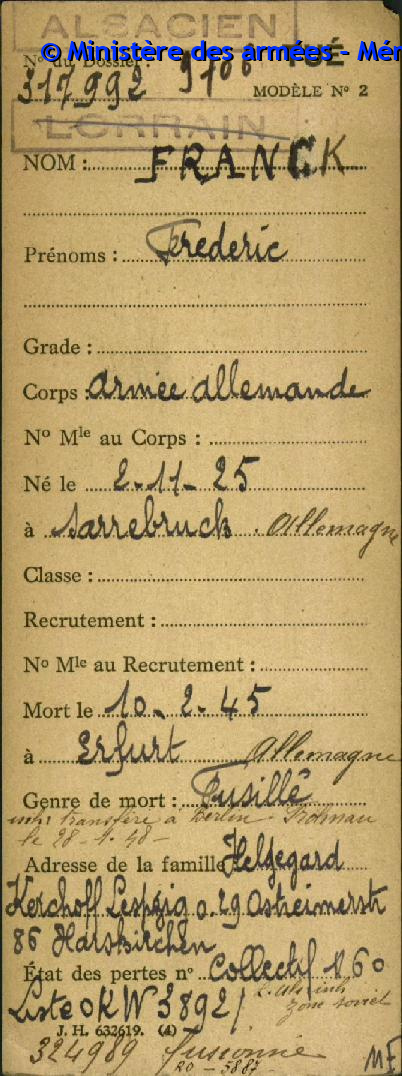 ALSACIEN
© Ministère des armées - Mém
No du Dossier : TUÉ
317992
MODÈLE No 2
LORRAIN
NOM : FRANCK
Prénoms : Frederic
Grade :
Corps : armée allemande
No Mle au Corps :
Né le 2-11-25
à Sarrebruck. Allemagne
Classe :
Recrutement :
No Mle au Recrutement :
Mort le 10-2-45
à Erfurt Allemagne
Genre de mort : Fusillé
inh: transféré à Berlin Frohnau
le 28-1-48-
Adresse de la famille Heldegard
Kerchoff Lespzig o. 29 Ostreimerstr
86 Harskirchen
État des pertes no Collectif 160
Liste OKW 3892/
zone soviet
J. H. 632619. (4)
324989 fusionné
20-5887